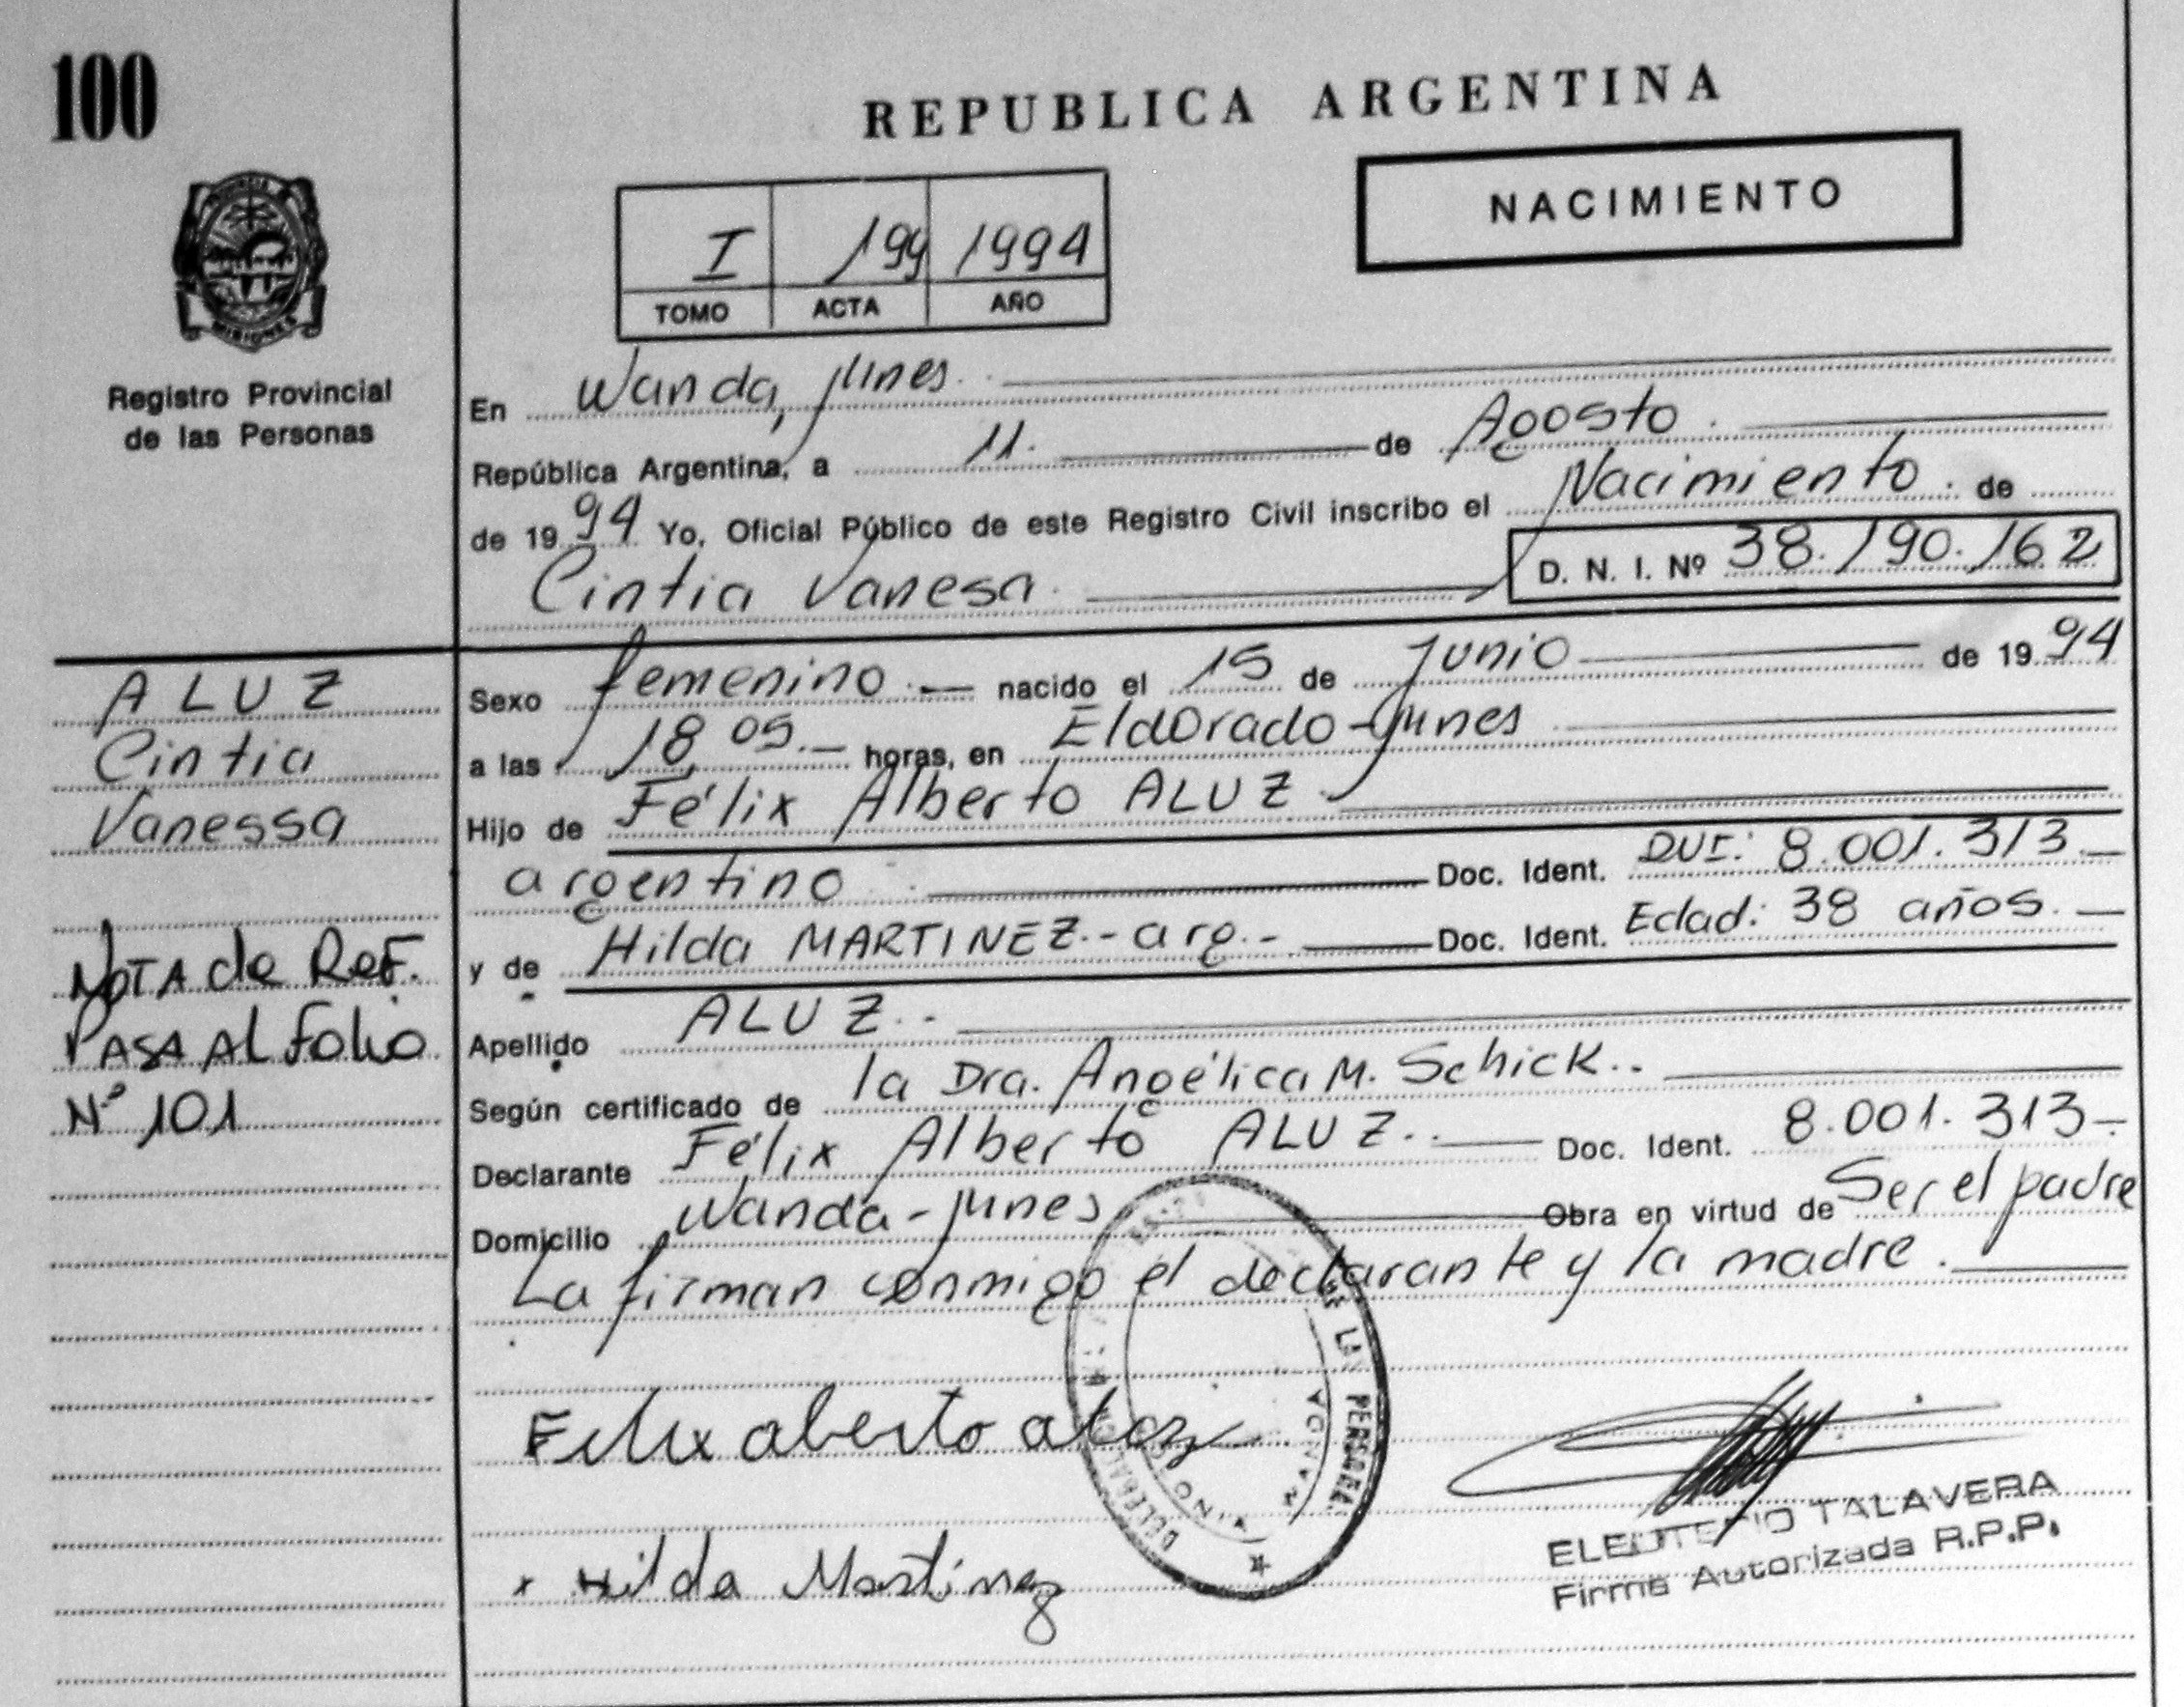 100
REPUBLICA ARGENTINA
NACIMIENTO
I 199 1994
TOMO ACTA AÑO
PROVINCIA DE
MISIONES
Registro Provincial
de las Personas
En Wanda, Mnes.
República Argentina, a 11. de Agosto.
de 1994 Yo, Oficial Público de este Registro Civil inscribo el Nacimiento. de
Cintia Vanesa. D. N. I. Nº 38.190.162
ALUZ
Cintia
Vanessa
NOTA de REF.
PASA Al Folio
Nº 101
Sexo femenino.- nacido el 15 de Junio de 1994
a las 18,05.- horas, en Eldorado-Mnes
Hijo de Félix Alberto ALUZ.
argentino. Doc. Ident. DNI: 8.001.313.-
y de Hilda MARTINEZ.-arg.- Doc. Ident. Edad: 38 años.-
Apellido ALUZ.-
Según certificado de la Dra. Angélica M. Schick..
Declarante Félix Alberto ALUZ.. Doc. Ident. 8.001.313-
Domicilio Wanda-Mnes Obra en virtud de Ser el padre
La firman conmigo el declarante y la madre.
DE LAS PERSONAS
WANDA
Felix aberto aluz
x Hilda Martinez
ELEUTERIO TALAVERA
Firma Autorizada R.P.P.